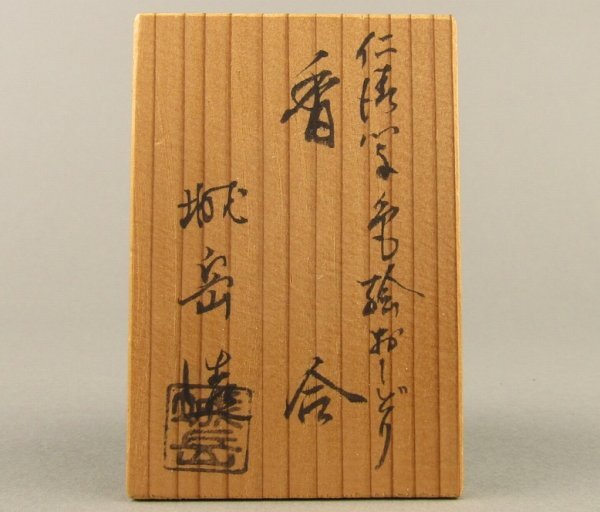 仁清写色絵おしどり
香合
城岳造
城岳